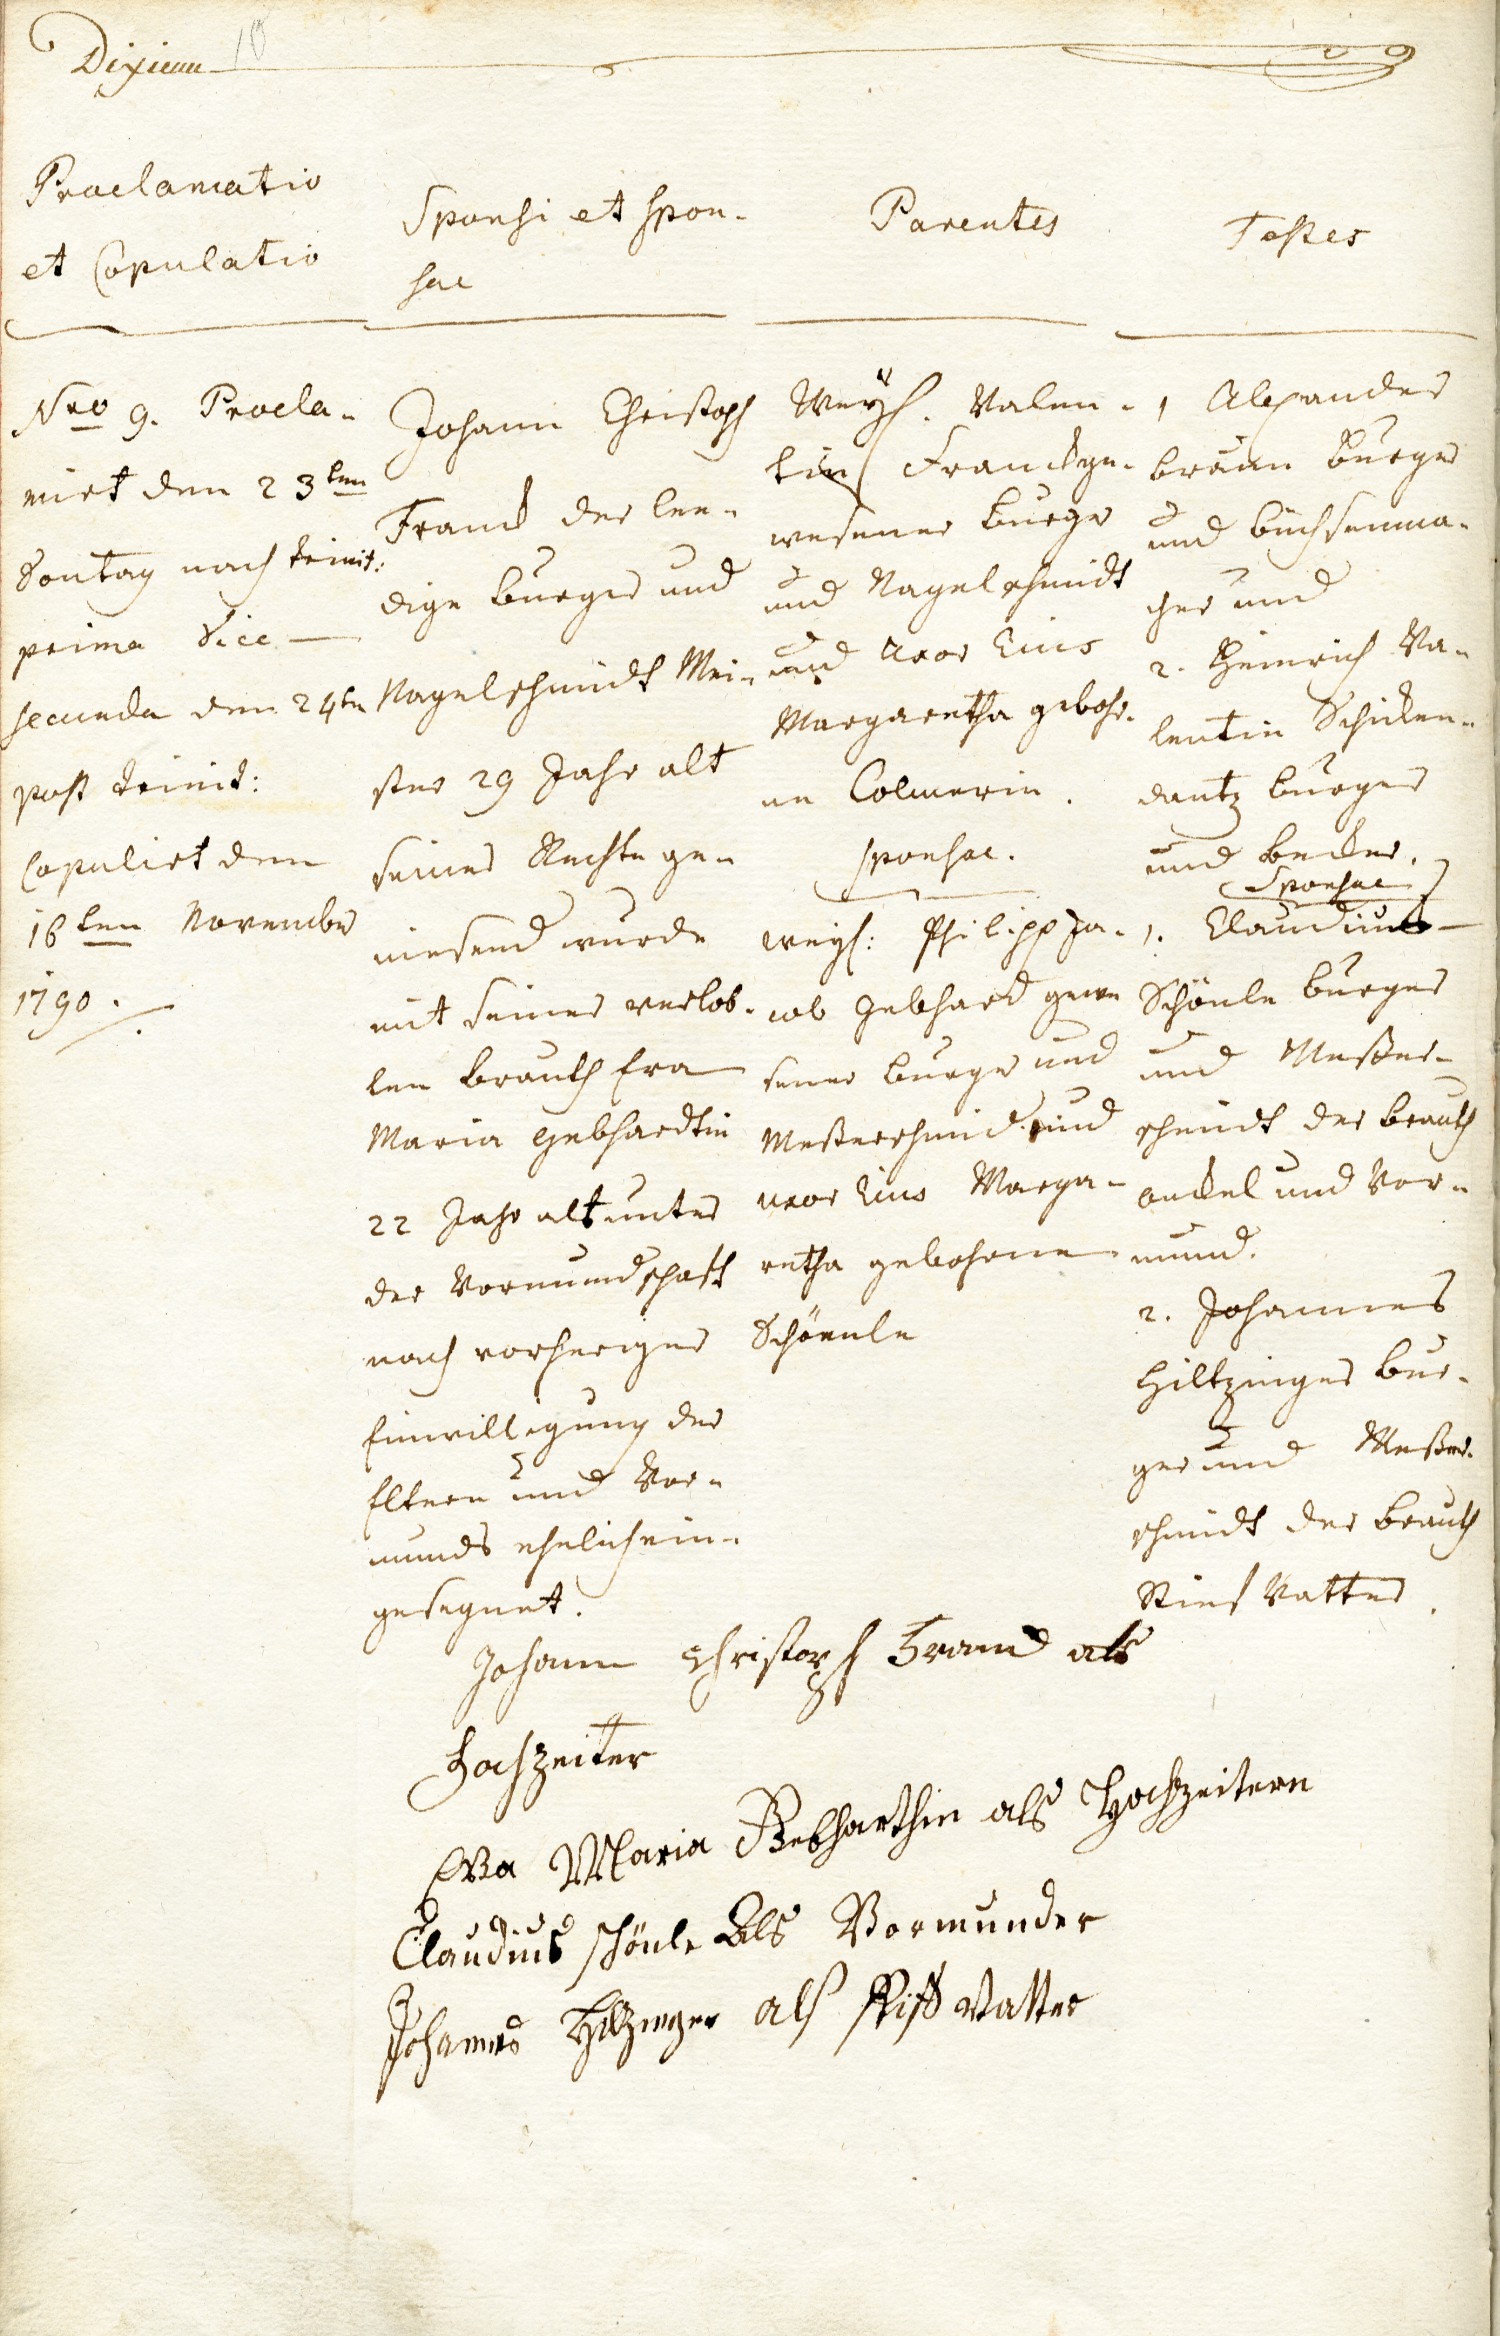 Dixieme 10
Proclamatio
et Copulatio
Sponsi et spon-
sae
Parentes
Testes
Nro 9. Procla-
mirt den 23ten
Sontag nach trinit:
prima Vice —
secunda den 24ten
post trinit:
Copulirt den
16ten November
1790.
Johann Christoph
Franck der lee-
dige burger und
Nagelschmidt Mei-
ster 29 Jahr alt
seiner Rechte ge-
niesend wurde
mit seiner verlob-
ten brauth Eva
Maria Gebhardtin
22 Jahr alt unter
der Vormundschaft
nach vorheriger
Einwilligung der
Eltern und Vor-
munds ehelich ein-
gesegnet.
Weyl. Valen-
tin Franck ge-
wesener burger
und Nagelschmidt
und uxor Eius
Margaretha gebohr-
ne Colmerin.
sponsae.
weyl: Philipp Ja-
cob Gebhard gewe
sener burger und
Meßerschmid und
uxor Eius Marga-
retha gebohrne
Schönle
1 Alexander
braun burger
und büchsenma-
cher und
2. Heinrich Va-
lentin Schicken-
dantz burger
und becker.
Sponsae
1. Claudius
Schönle burger
und Meßer-
schmidt der brauth
onckel und Vor-
mund.
2. Johannes
Hiltzinger bur-
ger und Meßer-
schmidt der brauth
Stief Vatter.
Johann Christoph Franck als
Hochzeiter
Eva Maria Gebharthin als Hochzeitern
Claudius schönle als Vormunder
Johannes Hilzinger als stiff Vatter